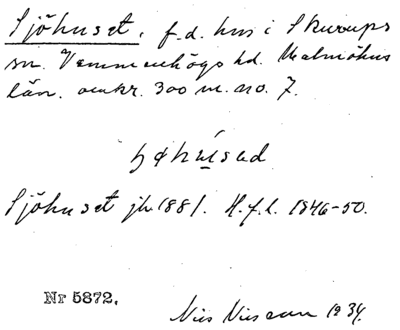 Sjöhuset, f.d. hus i Skurups
sn. Vemmenhögs hd. Malmöhus
län. omkr. 300 m. no. 7.
Sjöhuset jb 1881. H.f.l. 1846-50.
Nr 5872.
Nils Nilsson 1934.